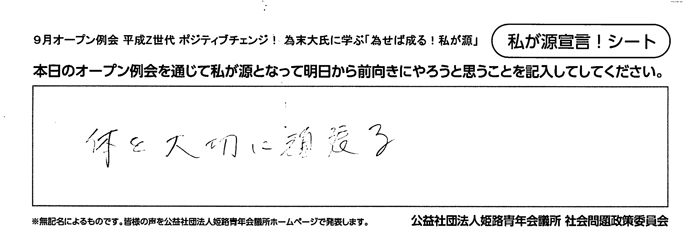 9月オープン例会 平成Z世代 ポジティブチェンジ! 為末大氏に学ぶ「為せば成る!私が源」
私が源宣言!シート
本日のオープン例会を通じて私が源となって明日から前向きにやろうと思うことを記入してしてください。
体を大切に頑張る
※無記名によるものです。皆様の声を公益社団法人姫路青年会議所ホームページで発表します。
公益社団法人姫路青年会議所 社会問題政策委員会